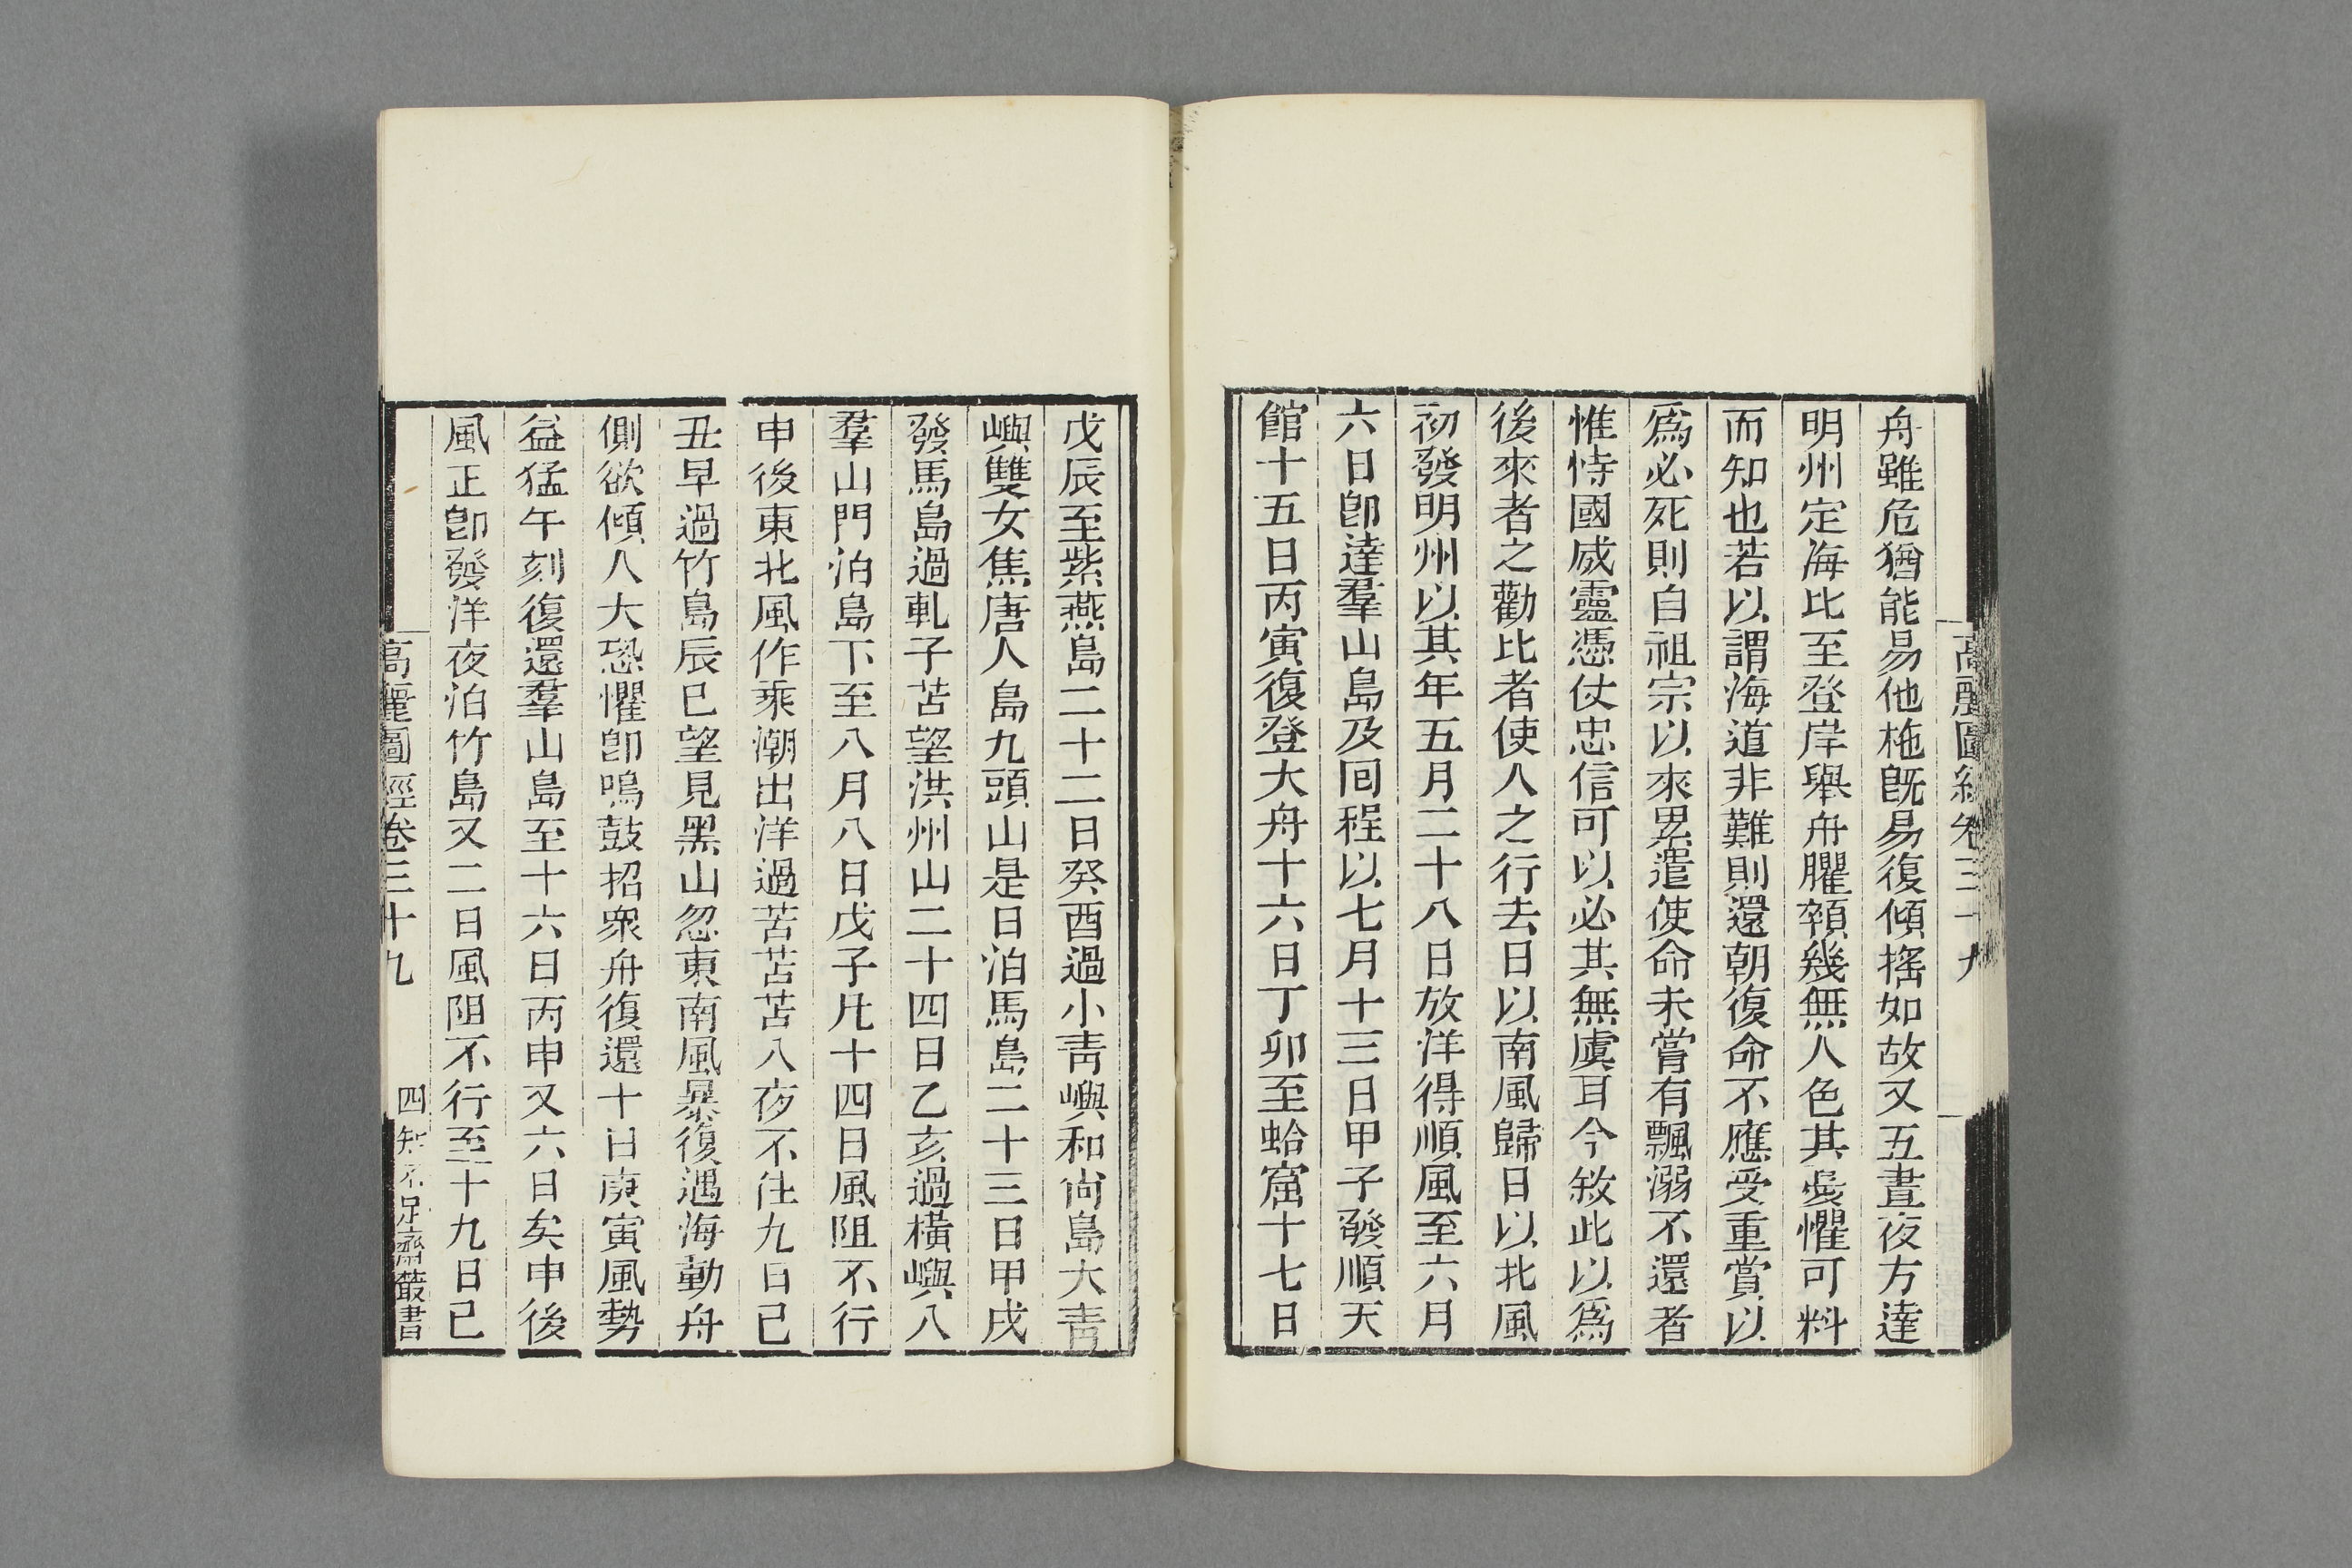 高麗圖經卷三十九
舟雖危猶能易他柂旣易復傾搖如故又五晝夜方達
明州定海比至登岸舉舟臞顇幾無人色其憂懼可料
而知也若以謂海道非難則還朝復命不應受重賞以
爲必死則自祖宗以來累遣使命未嘗有飄溺不還者
惟恃國威靈憑仗忠信可以必其無虞耳今敘此以爲
後來者之勸比者使人之行去日以南風歸日以北風
初發明州以其年五月二十八日放洋得順風至六月
六日卽達羣山島及回程以七月十三日甲子發順天
館十五日丙寅復登大舟十六日丁卯至蛤窟十七日
戊辰至紫燕島二十二日癸酉過小靑嶼和尙島大靑
嶼雙女焦唐人島九頭山是日泊馬島二十三日甲戌
發馬島過軋子苫望洪州山二十四日乙亥過橫嶼入
羣山門泊島下至八月八日戊子凡十四日風阻不行
申後東北風作乘潮出洋過苦苫苫入夜不住九日己
丑早過竹島辰巳望見黑山忽東南風暴復遇海動舟
側欲傾人大恐懼卽鳴鼓招衆舟復還十日庚寅風勢
益猛午刻復還羣山島至十六日丙申又六日矣申後
風正卽發洋夜泊竹島又二日風阻不行至十九日己
高麗圖經卷三十九 四 知不足齋叢書